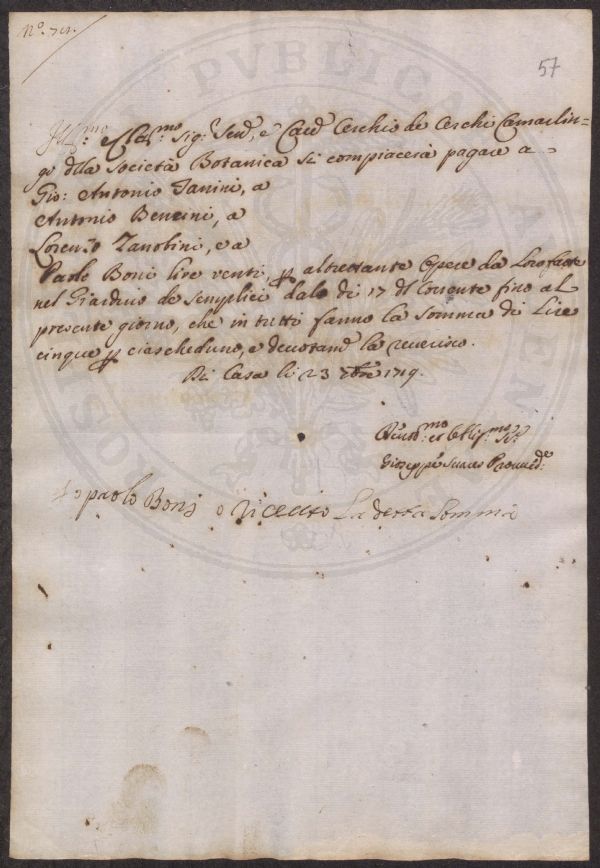 N.o
57
Ill:mo e Cl:mo Sig:r Sen:e, e Cav:e Cerchio de Cerchi Camarlin=
go dlla Società Botanica si compiacerà pagare a
Gio: Antonio Janini, a
Antonio Bencini, a
Lorenzo Zanobini, e a
Paolo Boni lire venti, p altrettante Opere da Loro fatte
nel Giardino de Semplici dalo di 17 dl Corrente fino al
presente giorno, che in tutti fanno la somma di Lire
cinque p ciascheduno, e devotam:e la reverisco.
Di Casa li 23 1719.
Giuseppe
Io paolo Boni o riceuto La detta somma